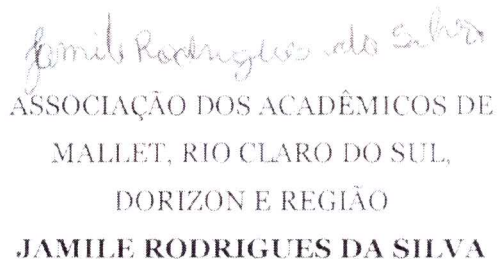 Jamile Rodrigues da Silva
ASSOCIAÇÃO DOS ACADÊMICOS DE
MALLET, RIO CLARO DO SUL,
DORIZON E REGIÃO
JAMILE RODRIGUES DA SILVA